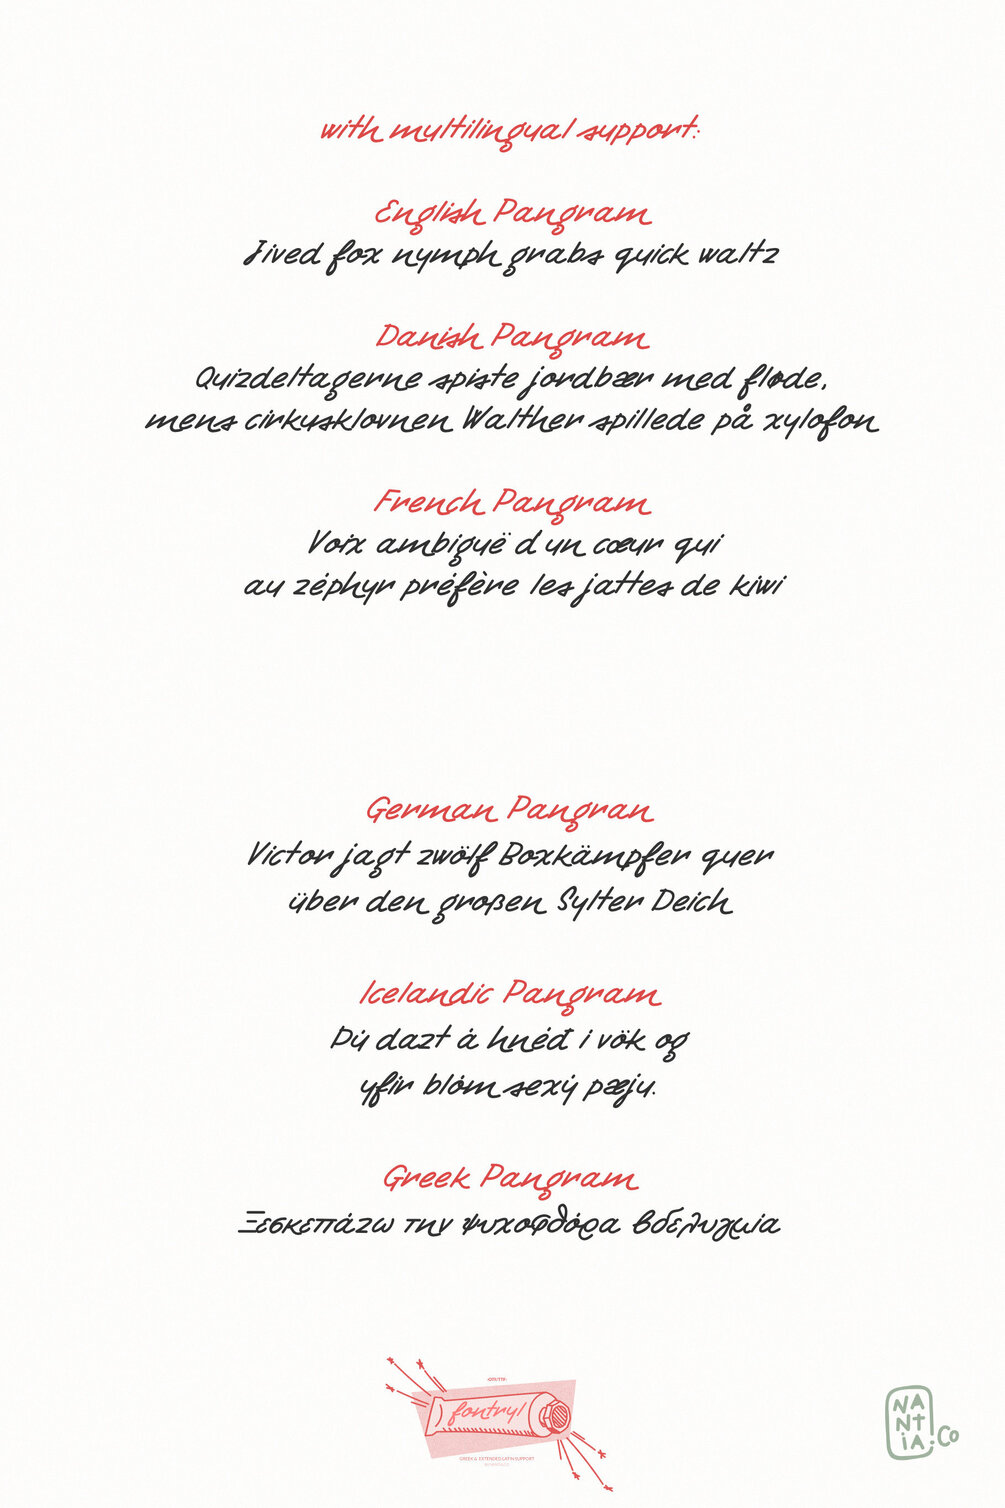 with multilingual support:
English Pangram
Jived fox nymph grabs quick waltz
Danish Pangram
Quizdeltagerne spiste jordbær med fløde,
mens cirkusklovnen Walther spillede på xylofon
French Pangram
Voix ambiguë d un cœur qui
au zéphyr préfère les jattes de kiwi
German Pangran
Victor jagt zwölf Boxkämpfer quer
über den großen Sylter Deich
Icelandic Pangram
Þú dazt á hnéð í vök og
yfir blóm sexý pæju.
Greek Pangram
Ξεσκεπάζω την ψυχοφθόρα βδελυγμία
fontryl
GREEK & EXTENDED LATIN SUPPORT
NANTIA.Co